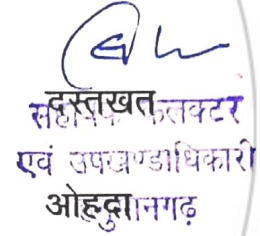 दस्तखत
सहायक कलक्टर
एवं उपखण्डाधिकारी
ओहदा